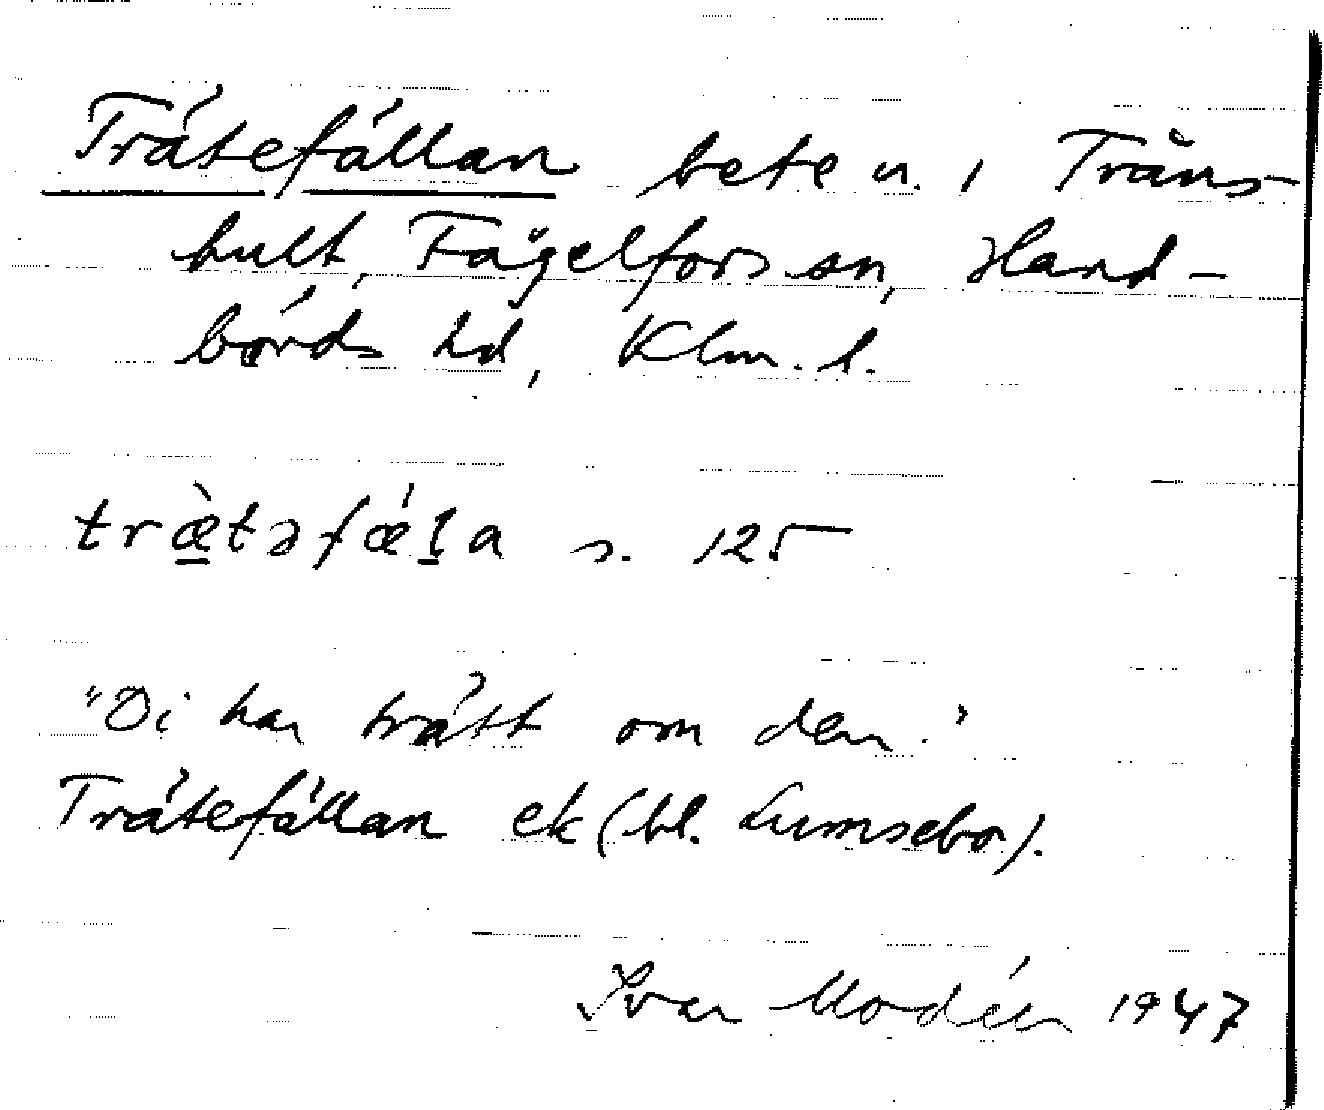 Trätefällan bete u. 1 Tråns-
hult, Fågelfors sn, Hand-
börds hd, Klm. l.
træ̀təfǽl̠a s. 125
"Di har trätt om den."
Trätefällan ek (bl. Lumsebo).
Ivar Modéer 1947